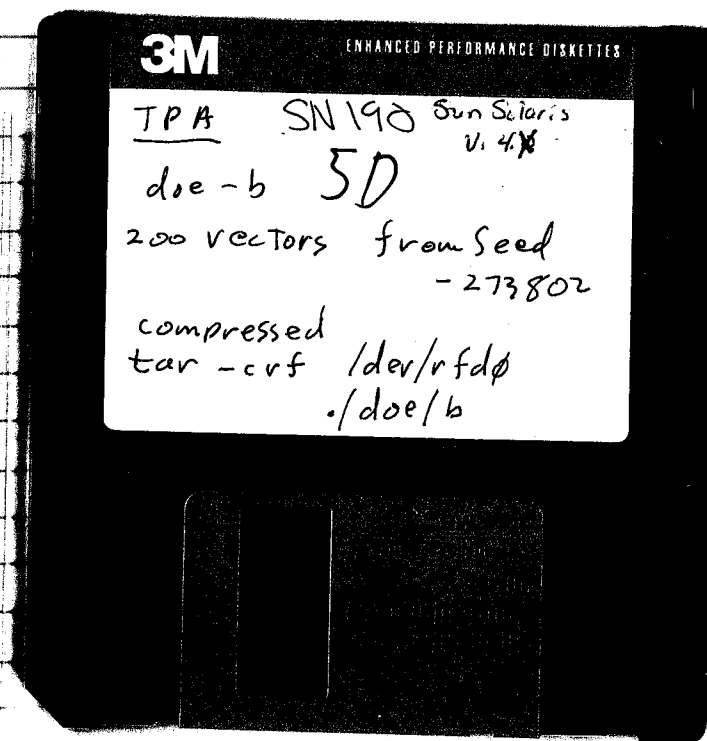 3M ENHANCED PERFORMANCE DISKETTES
TPA SN190 Sun Solaris
V. 4.
doe-b 5D
200 vectors from Seed
-273802
compressed
tar -cvf /dev/rfdø
./doe/b